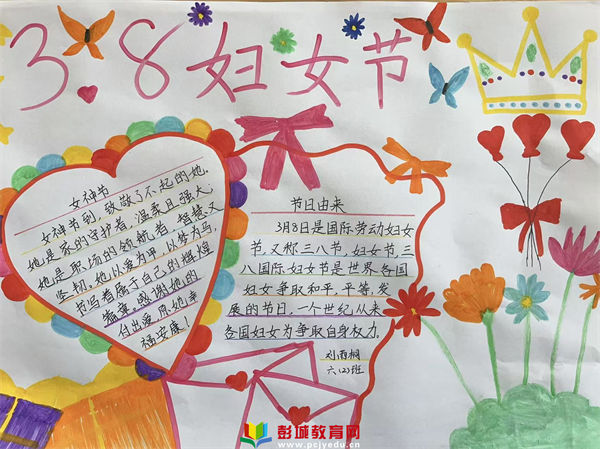 3.8妇女节
女神节
女神节到，致敬了不起的她。
她是家的守护者，温柔且强大；
她是职场的领航者，智慧又
坚韧。她以爱为甲，以梦为马，
书写着属于自己的辉煌
篇章。感谢她的
付出爱，愿她幸
福安康！
节日由来
3月8日是国际劳动妇女
节，又称三八节，妇女节，三
八国际妇女节是世界各国
妇女争取和平，平等，发
展的节日，一个世纪，从来
各国妇女为争取自身权力。
刘雨桐
六(2)班
彭城教育网
www.pcjyedu.cn